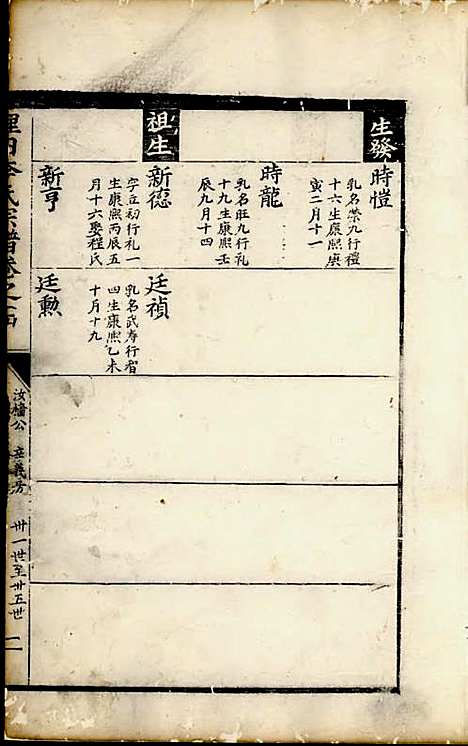 生發
時愷
乳名榮九行禮
十六生康熙庚
寅二月十一
時龍
乳名旺九行礼
十九生康熙壬
辰九月十四
祖生
新德
字立初行礼一
生康熙丙辰五
月十六娶程氏
新亨
廷禎
乳名武寿行省
四生康熙乙未
十月十九
廷勳
田李氏宗譜卷之四
汝檣公
義房
卅一世至卅五世